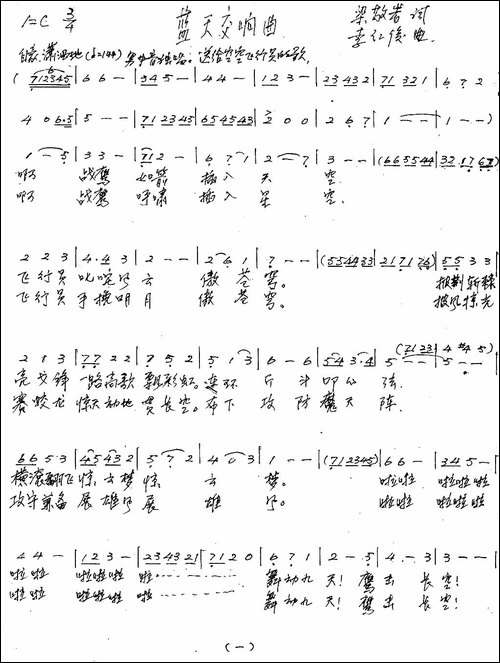 1=C 3/4 蓝天交响曲 梁敬岩 词
李仁俊 曲
自豪、潇洒地 (♩=144) 送给空军飞行员的歌
( 712345 | 6 6 - | 345 - | 4 4 - | 1 2 3 - | 23 43 2 | 71 32 1 | 6 7 2
4 0 6·5 | 5 - - | 71 2345 | 65 4543 | 2 0 0 | 2 6 7 | 1 - - | 1 - - )
1 - 5 | 3 3 - | 71 2 - | 6 7 1 | 2 - 7 | 3 - - | (665544 | 32 17 67 |
啊 战鹰 如箭 插入 天 空
啊 战鹰 呼啸 插入 星 空
2 2 3 | 4·4 3 | 2 - - | 2 6 1 | 7 - - | (554433 | 2171 76) | 55 3 3
飞行员 叱咤风云 傲苍穹。 披荆斩棘
飞行员 手挽明月 傲苍穹。 披风惊光
2 1 3 | 77 2 2 | 7 5 2 | 5 1 3 | 6 - 6 | 54 3·4 | 5 - - | 5 - - (7123 | 4 #4 5)
亮交锋 一路高歌 飘彩虹。连环 斤斗叩心弦
赛蛟龙 惊天动地 贯长空。布下 攻防魔天阵
66 5·3 | 45 43 2 | 5 7 2 | 4 0 3 | 1 - - | (712345 | 6 6 - | 34 5 -
横滚翻飞 惊云梦 惊 云 梦。 啦啦 啦啦啦
攻守兼备 展雄风 展 雄 风。 啦啦 啦啦啦
4 4 - | 1 2 3 - | 23 43 21 | 71 2 0 | 6 7 1 | 2 - 5 | 4 - 3 | 3 - - |
啦啦 啦啦啦 啦 舞动九 天! 鹰击 长空!
啦啦 啦啦啦 啦 舞动九 天! 鹰击 长空!
(一)